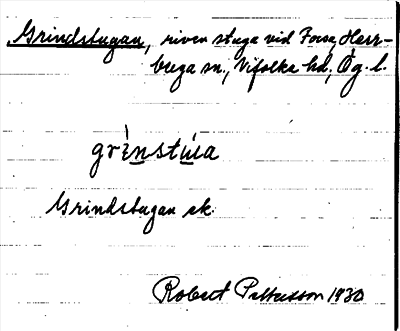 Grindstugan, riven stuga vid Forsa, Herr-
berga sn., Vifolka hd, Ög. l.
grènstùa
Grindstugan ek.
Robert Pettersson 1930